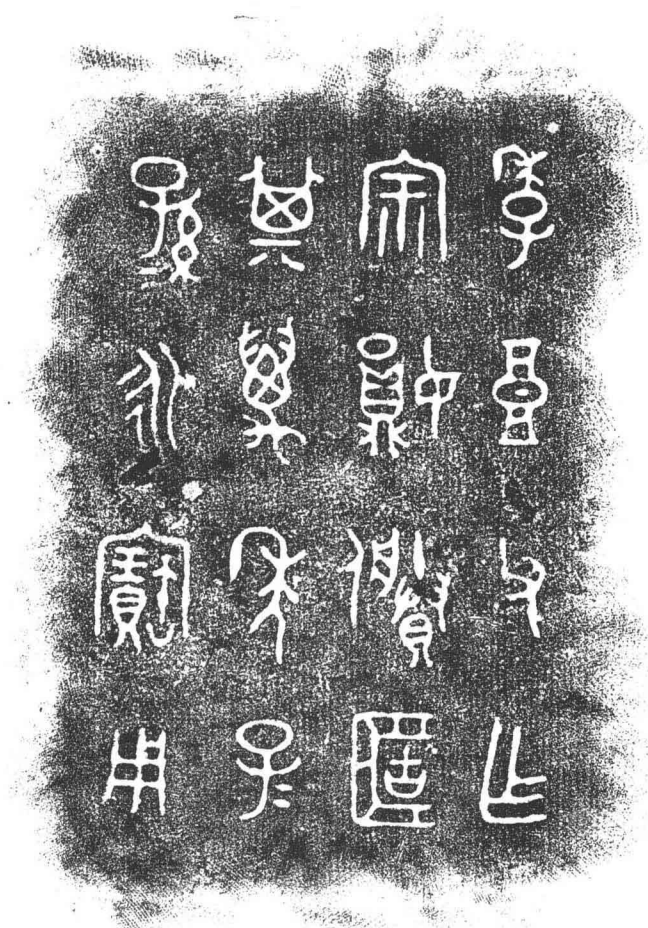 季良父乍
宗娟媵簠
其萬年子=
孫=永寶用